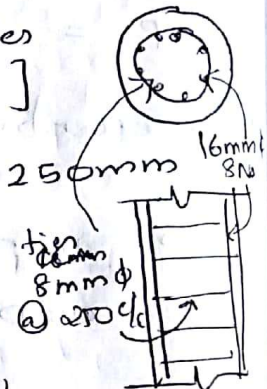 es
]
250mm
16mm
8No
ties
8mm ϕ
@ 250 c/c